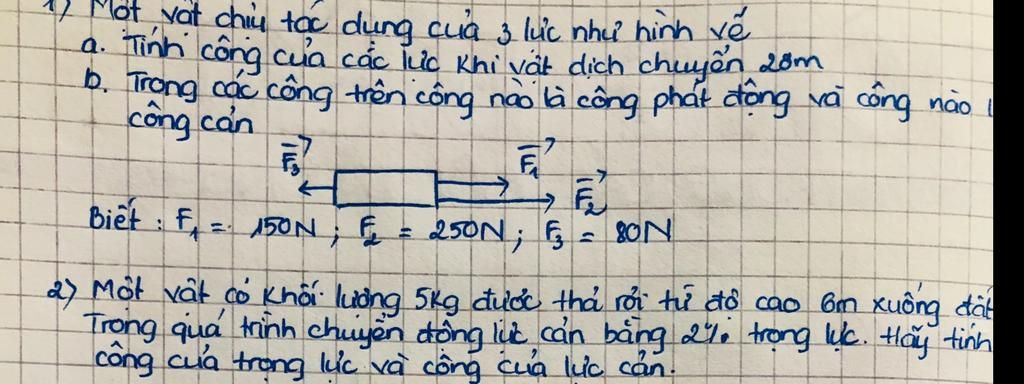 1) Một vật chịu tác dụng của 3 lực như hình vẽ
a. Tính công của các lực khi vật dịch chuyển 20m
b. Trong các công trên công nào là công phát động và công nào
công cản
F₃ F₁
F₂
Biết : F₁ = 150N ; F₂ = 250N ; F₃ = 80N
2) Một vật có khối lượng 5kg được thả rơi từ độ cao 6m xuống đất
Trong quá trình chuyển động lực cản bằng 2% trọng lực. Hãy tính
công của trọng lực và công của lực cản.